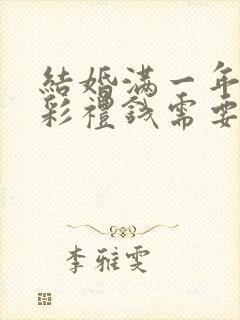 結婚满一年
彩禮錢需要
李雅雯